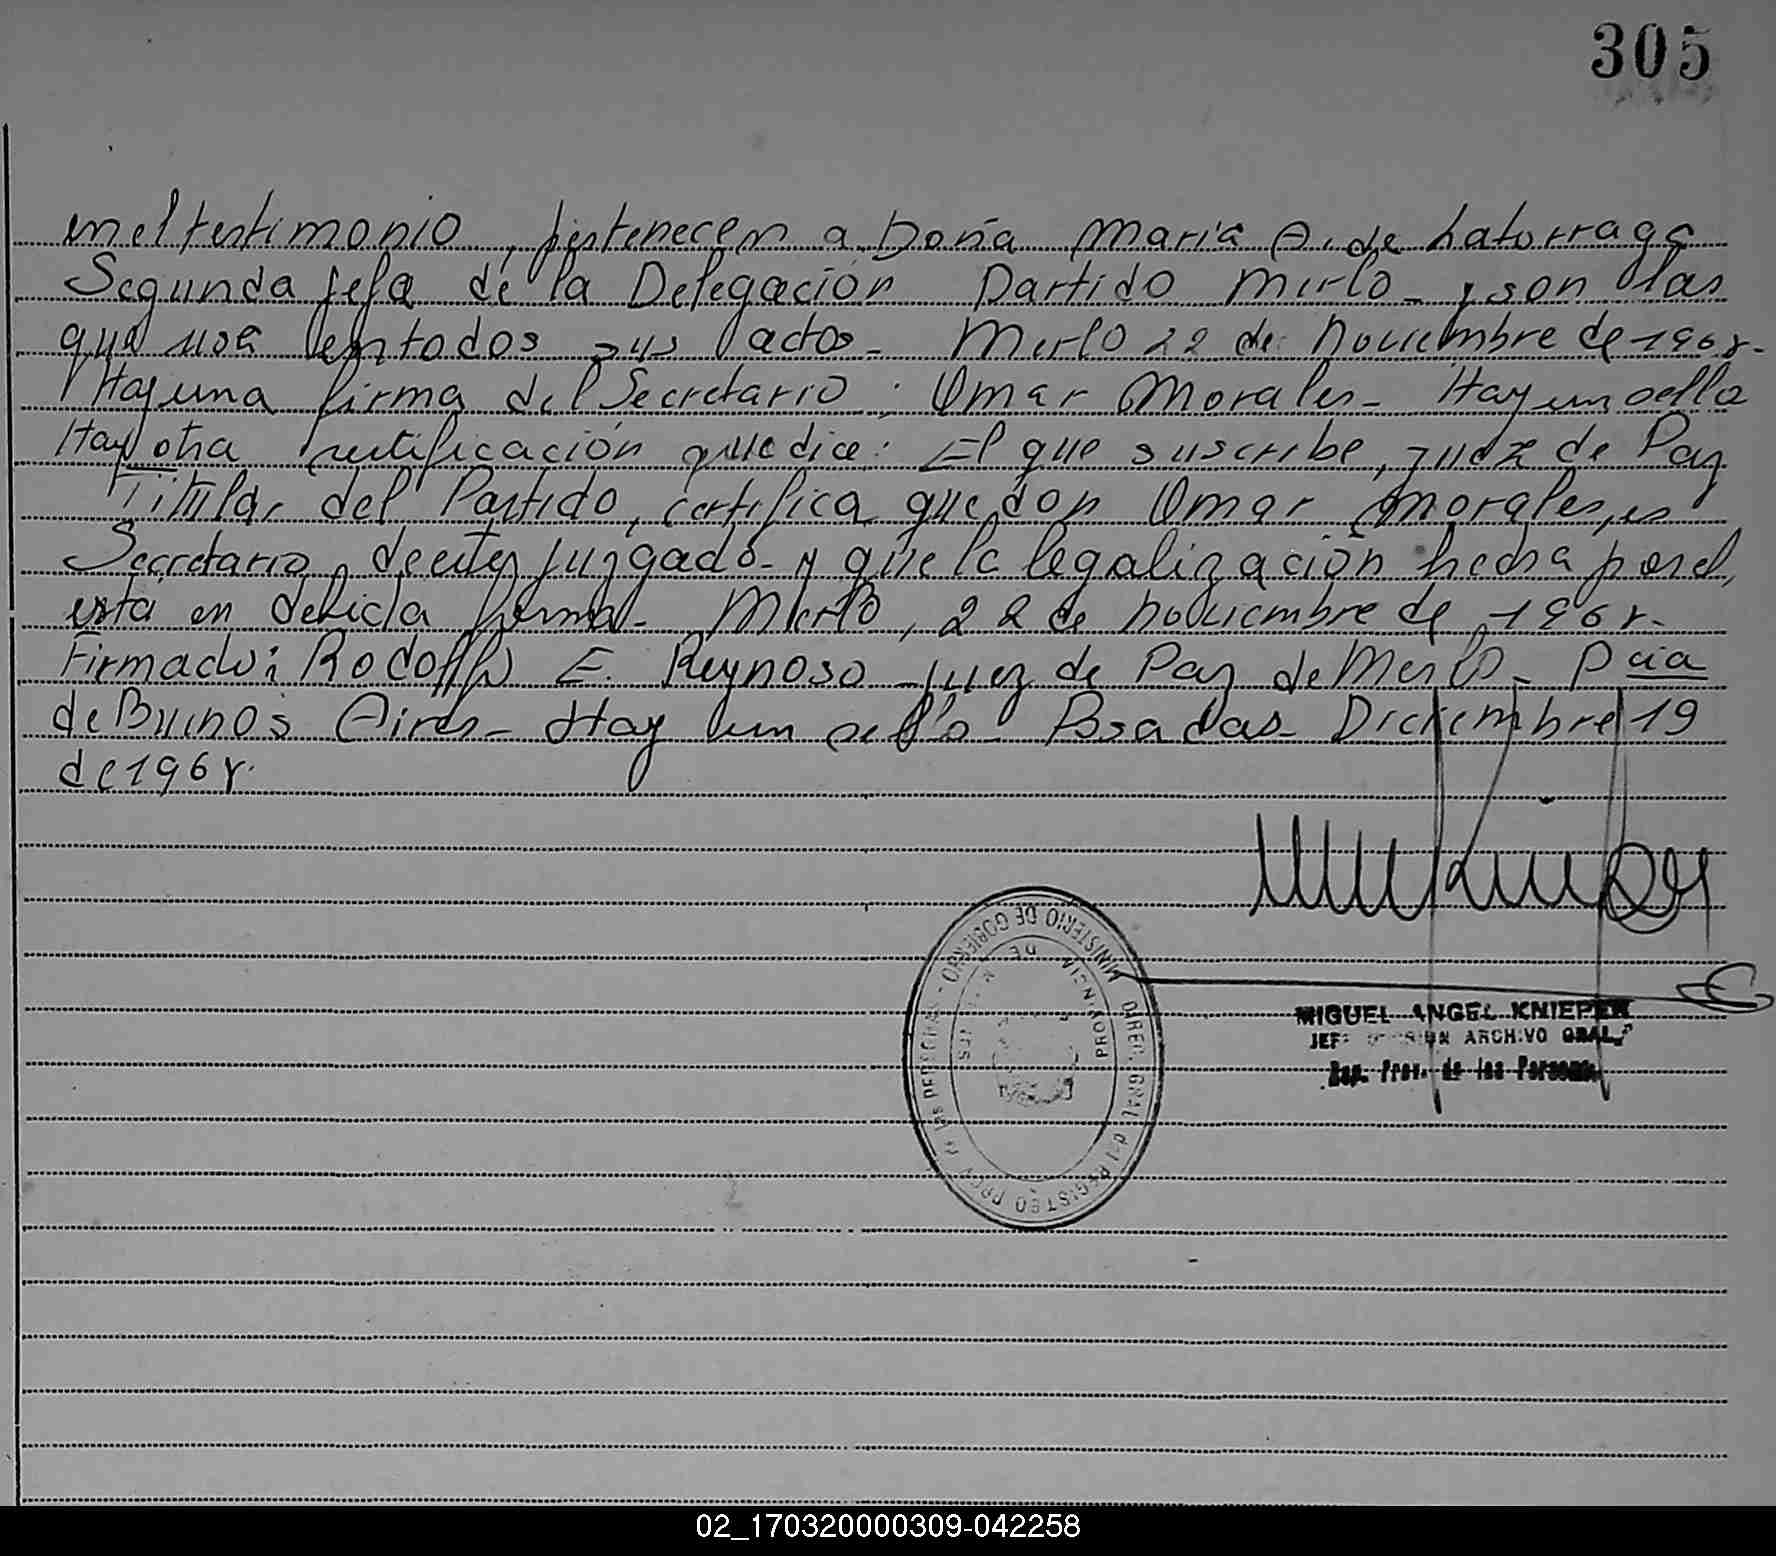 305
en el testimonio, pertenecen a Doña Maria A. de Latorraga
Segunda Jefa de la Delegación Partido Merlo - y son las
que usa en todos sus actos - Merlo 22 de Noviembre de 1968.
Hay una firma del Secretario: Omar Morales - Hay un sello
Hay otra certificación que dice: El que suscribe, Juez de Paz
Titular del Partido, certifica que don Omar Morales, es
Secretario de este Juzgado - y que la legalización hecha por el,
está en debida forma - Merlo, 22 de Noviembre de 1968.
Firmado: Rodolfo E. Reynoso - Juez de Paz de Merlo - Pcia
de Buenos Aires - Hay un sello - Posadas - Diciembre 19
de 1968.
MINISTERIO DE GOBIERNO - DIREC. GRAL. del REGISTRO PROV. de las PERSONAS -
PROVINCIA DE MISIONES
MIGUEL ANGEL KNIEPER
JEFE DIVISION ARCHIVO GRAL.
Rep. Prov. de las Personas
02_170320000309-042258